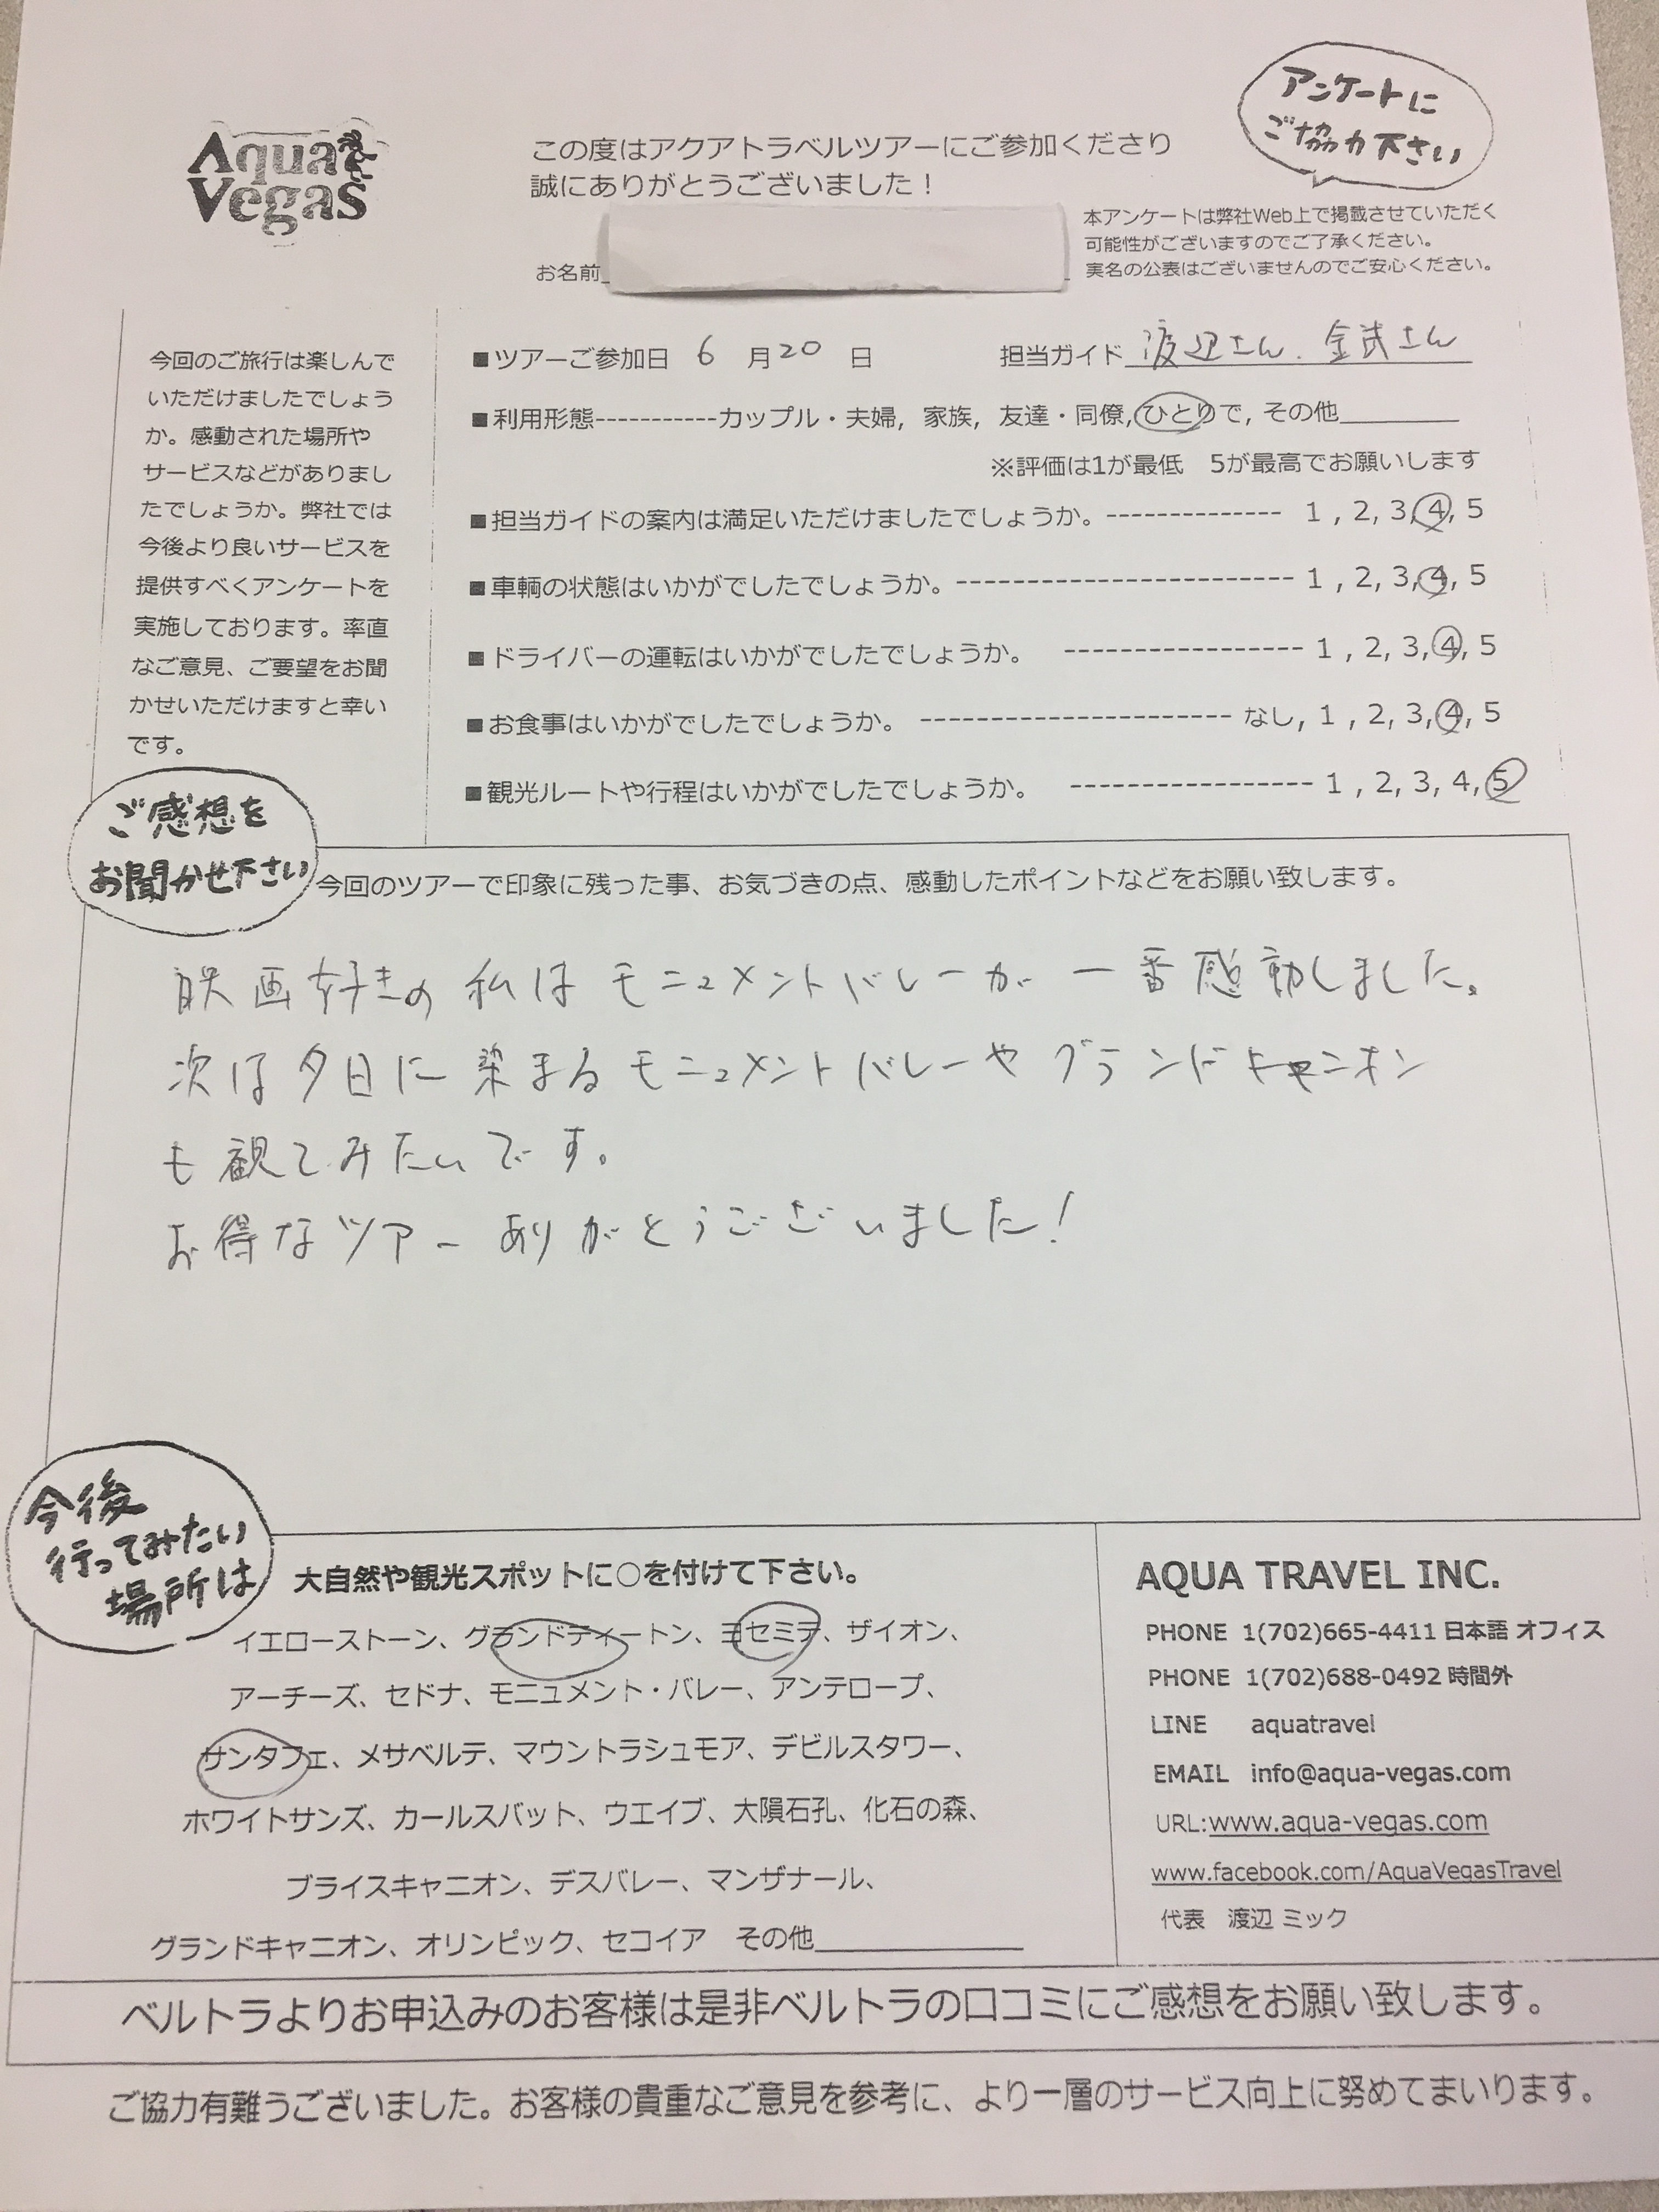 Aqua
Vegas
この度はアクアトラベルツアーにご参加くださり
誠にありがとうございました！
アンケートに
ご協力下さい
お名前
本アンケートは弊社Web上で掲載させていただく
可能性がございますのでご了承ください。
実名の公表はございませんのでご安心ください。
今回のご旅行は楽しんで
いただけましたでしょう
か。感動された場所や
サービスなどがありまし
たでしょうか。弊社では
今後より良いサービスを
提供すべくアンケートを
実施しております。率直
なご意見、ご要望をお聞
かせいただけますと幸い
です。
■ツアーご参加日 6 月 20 日 担当ガイド 渡辺さん、金武さん
■利用形態-----------カップル・夫婦, 家族, 友達・同僚, ひとりで, その他
※評価は1が最低 5が最高でお願いします
■担当ガイドの案内は満足いただけましたでしょうか。-------------- 1 , 2, 3, 4, 5
■車輌の状態はいかがでしたでしょうか。--------------------------- 1 , 2, 3, 4, 5
■ドライバーの運転はいかがでしたでしょうか。 ------------------- 1 , 2, 3, 4, 5
■お食事はいかがでしたでしょうか。 ------------------------- なし, 1 , 2, 3, 4, 5
■観光ルートや行程はいかがでしたでしょうか。 ------------------- 1 , 2, 3, 4, 5
ご感想を
お聞かせ下さい
今回のツアーで印象に残った事、お気づきの点、感動したポイントなどをお願い致します。
映画好きの私はモニュメントバレーが一番感動しました。
次は夕日に染まるモニュメントバレーやグランドキャニオン
も観てみたいです。
お得なツアーありがとうございました！
今後
行ってみたい
場所は
大自然や観光スポットに○を付けて下さい。
イエローストーン、グランドティートン、ヨセミテ、ザイオン、
アーチーズ、セドナ、モニュメント・バレー、アンテロープ、
サンタフェ、メサベルデ、マウントラシュモア、デビルスタワー、
ホワイトサンズ、カールスバット、ウエイブ、大隕石孔、化石の森、
ブライスキャニオン、デスバレー、マンザナール、
グランドキャニオン、オリンピック、セコイア その他
AQUA TRAVEL INC.
PHONE 1(702)665-4411 日本語 オフィス
PHONE 1(702)688-0492 時間外
LINE aquatravel
EMAIL info@aqua-vegas.com
URL:www.aqua-vegas.com
www.facebook.com/AquaVegasTravel
代表 渡辺 ミック
ベルトラよりお申込みのお客様は是非ベルトラの口コミにご感想をお願い致します。
ご協力有難うございました。お客様の貴重なご意見を参考に、より一層のサービス向上に努めてまいります。